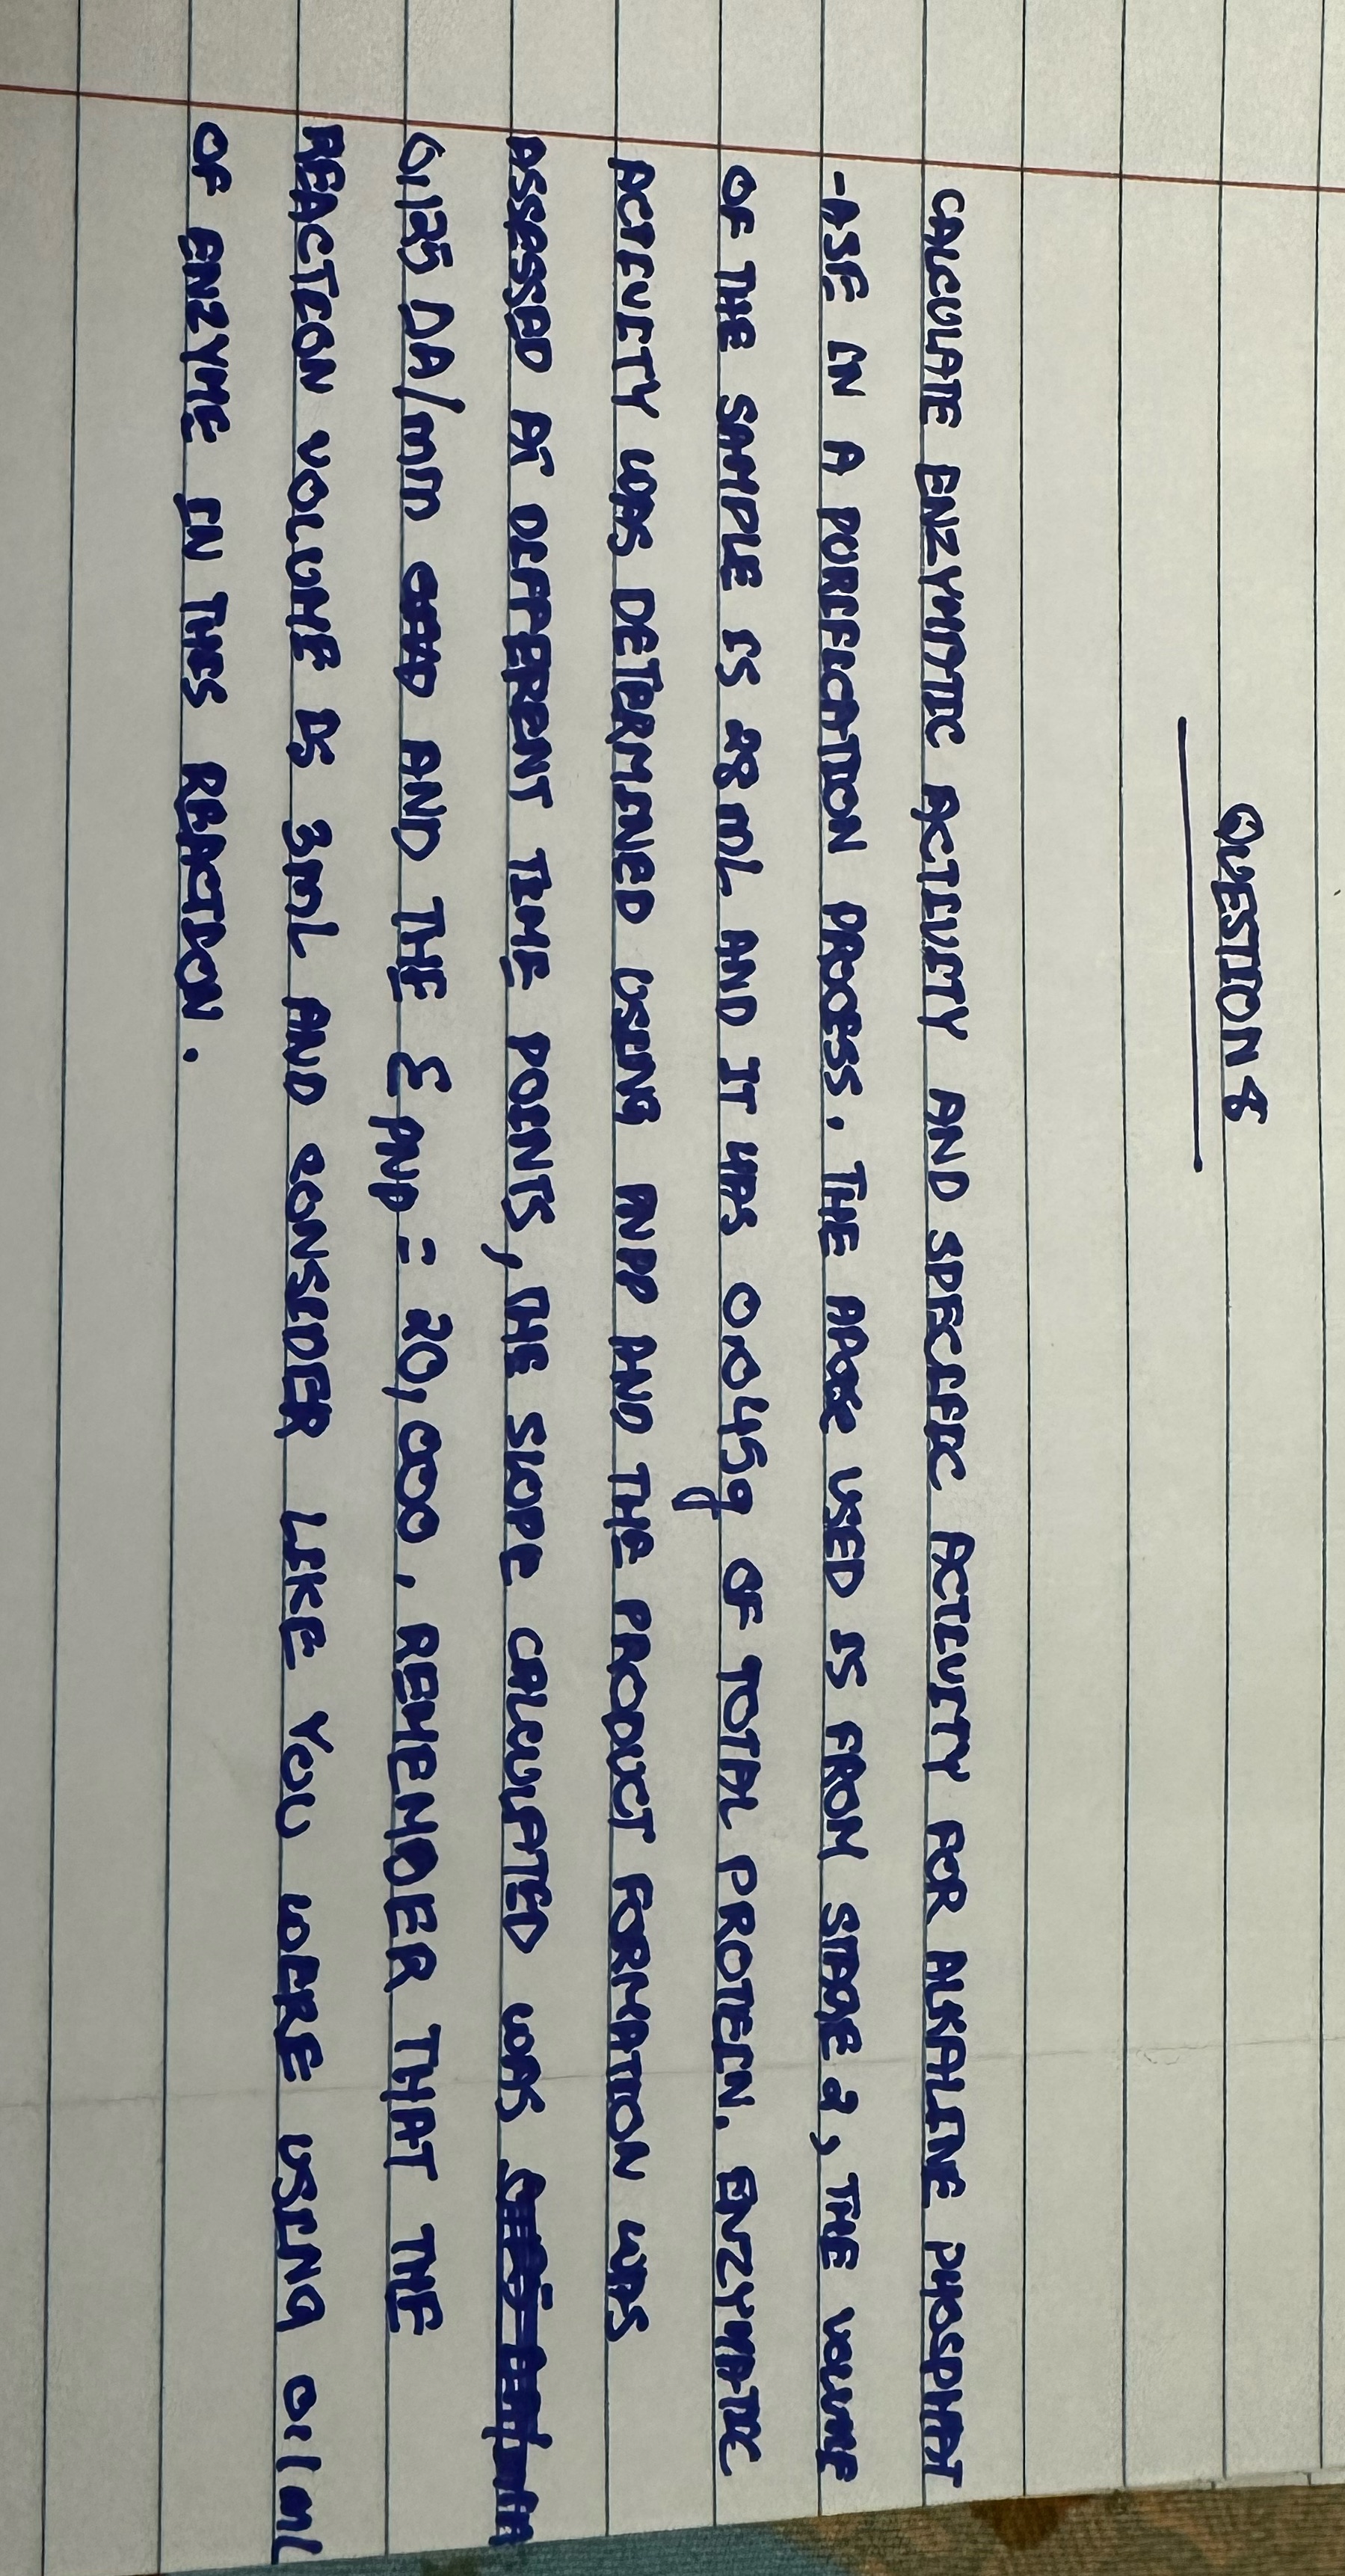 QUESTION 8
CALCULATE ENZYMITIC ACTIVITY AND SPECIFIC ACTIVITY FOR ALKALINE PHOSPHAT
-ASE IN A PURIFICATION PROCESS. THE APASE USED IS FROM STAGE 2, THE VOLUME
OF THE SAMPLE IS 28 mL AND IT HAS 0.045g OF TOTAL PROTEIN. ENZYMATIC
ACTIVITY WAS DETERMINED USING PNPP AND THE PRODUCT FORMATION WAS
ASSESSED AT DIFFERENT TIME POINTS, THE SLOPE CALCULATED WAS
0.135 ΔA/min AND THE ε PNP = 20,000. REMEMBER THAT THE
REACTION VOLUME IS 3mL AND CONSIDER LIKE YOU WERE USING 0.1mL
OF ENZYME IN THIS REACTION.